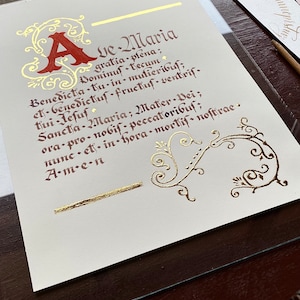 Ave Maria
gratia · plena;
Dominus · tecum
Benedicta · tu · in · mulieribus;
et · benedictus · fructus · ventris ·
tui · Jesus.
Sancta · Maria; Mater · Dei;
ora · pro · nobis · peccatoribus;
nunc · et · in · hora · mortis · nostrae ·
A · m · e · n